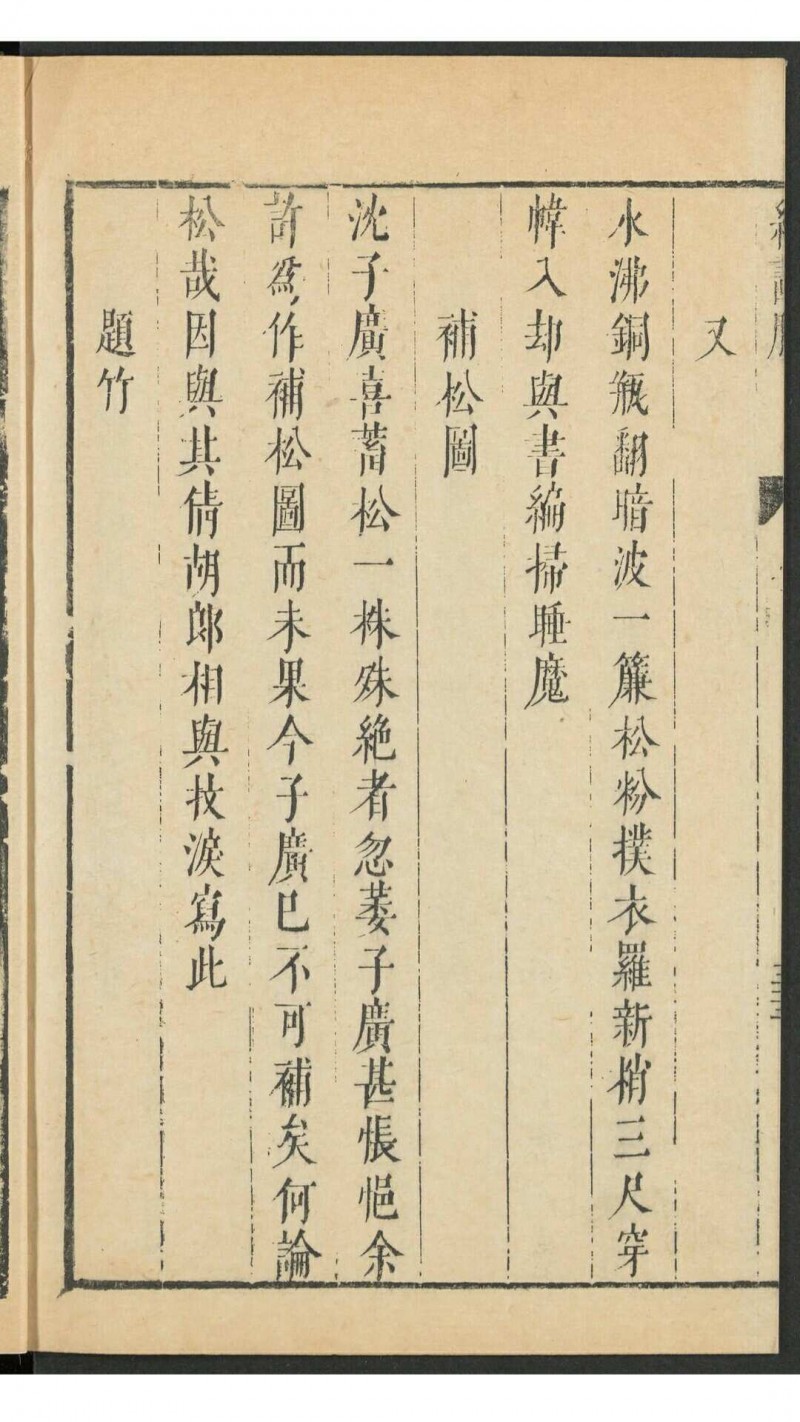 又
水沸銅瓶翻暗波一簾松粉撲衣羅新梢三尺穿
幃入却與書編掃睡魔
補松圖
沈子廣喜蓄松一株殊絶者忽萎子廣甚悵悒余
許爲作補松圖而未果今子廣已不可補矣何論
松哉因與其倩胡郎相與抆淚寫此
題竹